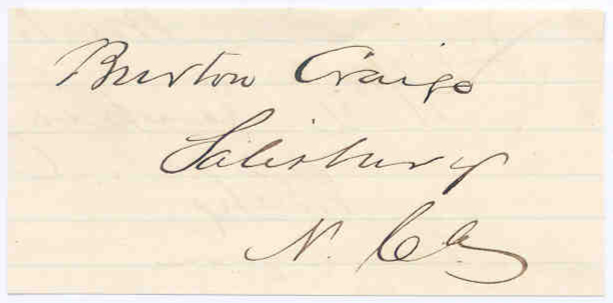 Burton Craige
Salisbury
N. Ca.